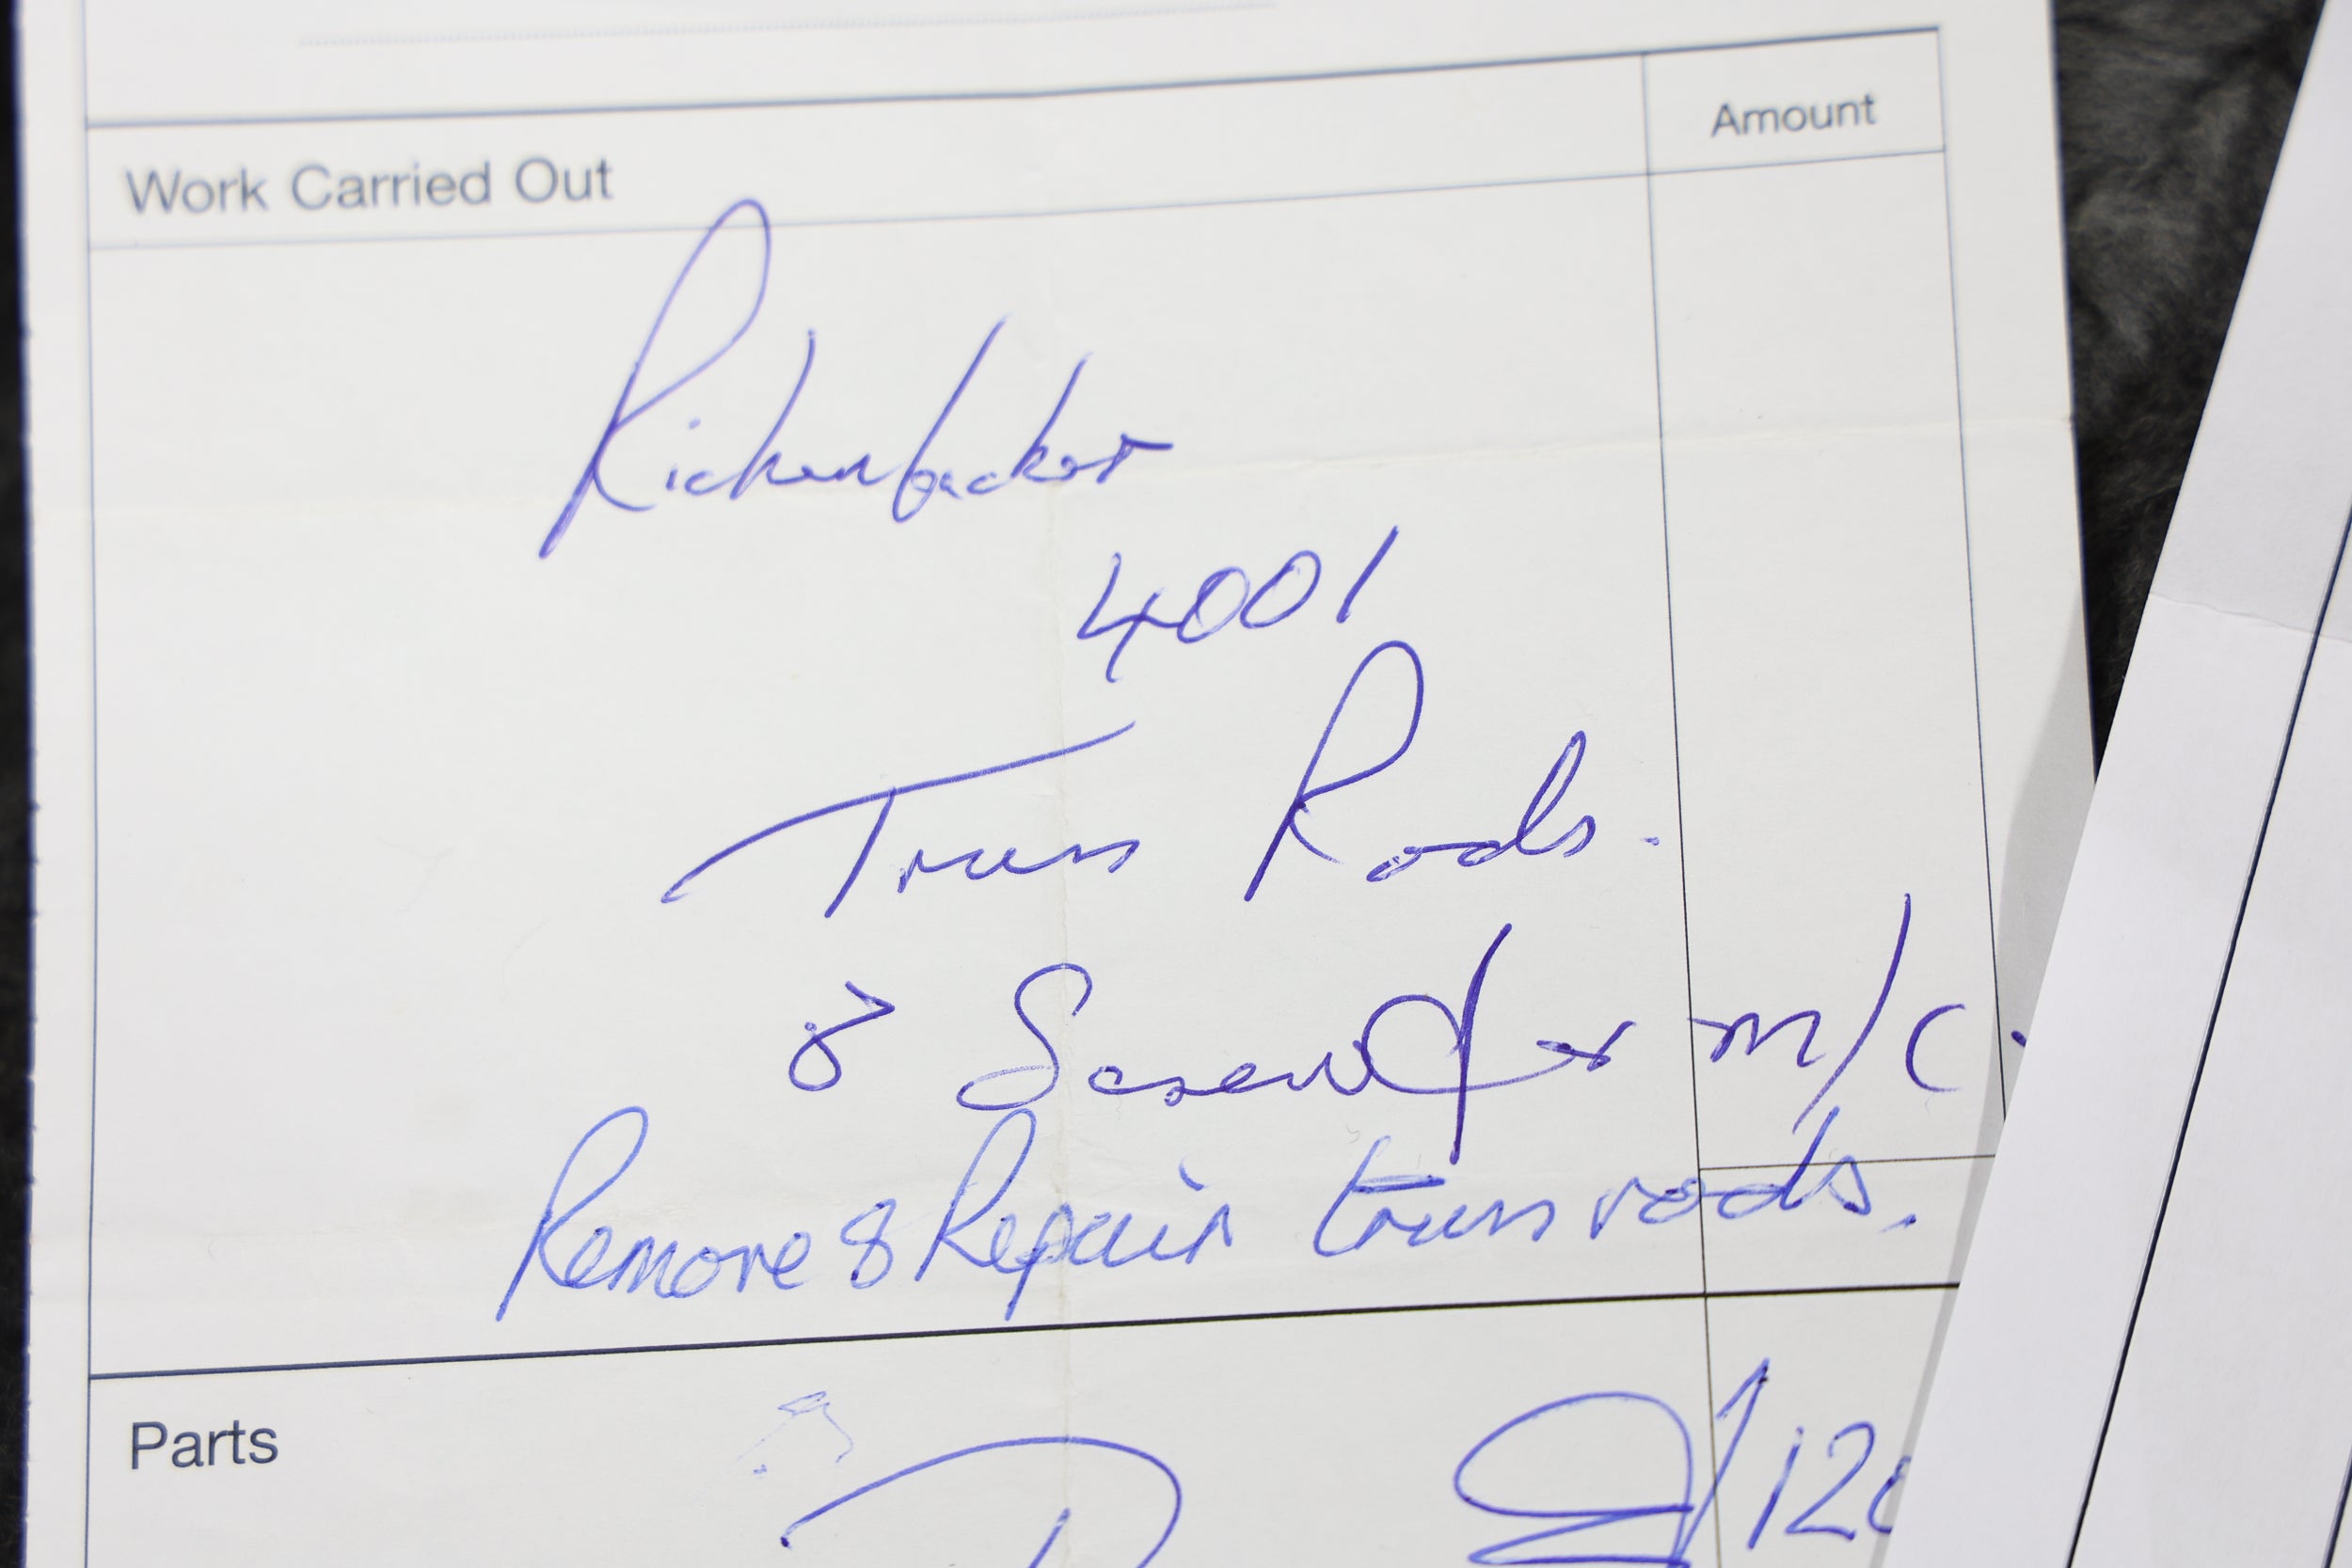 Amount
Work Carried Out
Rickenbacker
4001
Truss Rods.
& Screw for m/c.
Remove & Repair truss rods.
Parts